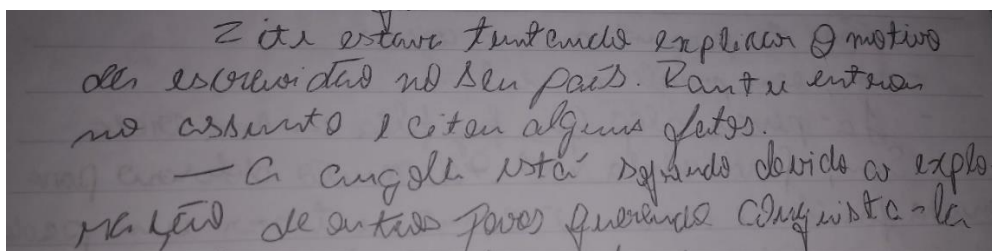 Zitu estava tentando explicar o motivo
da escravidão no seu país. Bantu entrou
no assunto e citou alguns fatos.
— A angola está sofrendo devido as explo
ração de outros povos querendo conquista-la